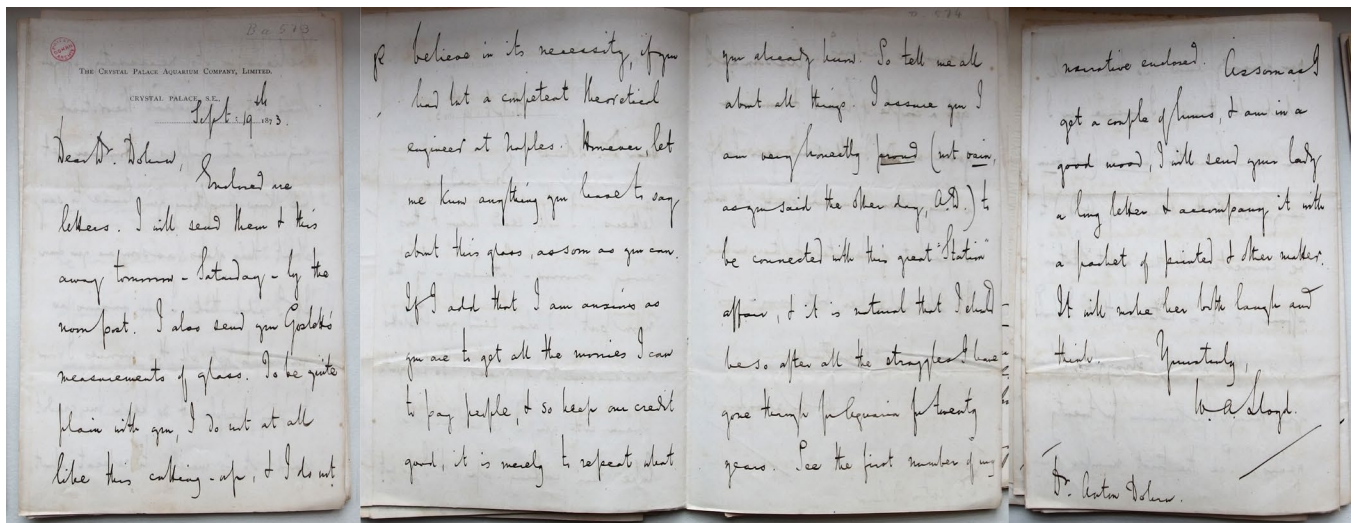 Ba 573
THE CRYSTAL PALACE AQUARIUM COMPANY, LIMITED.
CRYSTAL PALACE, S.E.,
Sept: 19th 1873.
Dear Dr. Dohrn,
Enclosed are
letters. I will send them & this
away tomorrow - Saturday - by the
noon post. I also send you
measurements of glass. To be quite
plain with you, I do not at all
like this cutting-up, & I do not
believe in its necessity, if you
had but a competent theoretical
engineer at Naples. However, let
me know anything you have to say
about this glass, as soon as you can.
If I add that I am anxious as
you are to get all the monies I can
to pay people, & so keep our credit
good, it is merely to repeat what
you already know. So tell me all
about all things. I assure you I
am very honestly proud (not vain,
as you said the other day, A.D.) to
be connected with this great "Station"
affair, & it is natural that I should
be so after all the struggles I have
gone through for Aquaria for twenty
years. See the first number of my
narrative enclosed. As soon as I
get a couple of hours, & am in a
good mood, I will send your lady
a long letter & accompany it with
a packet of printed & other matter.
It will make her both laugh and
think. Yours truly,
W. A. Lloyd.
Dr. Anton Dohrn.